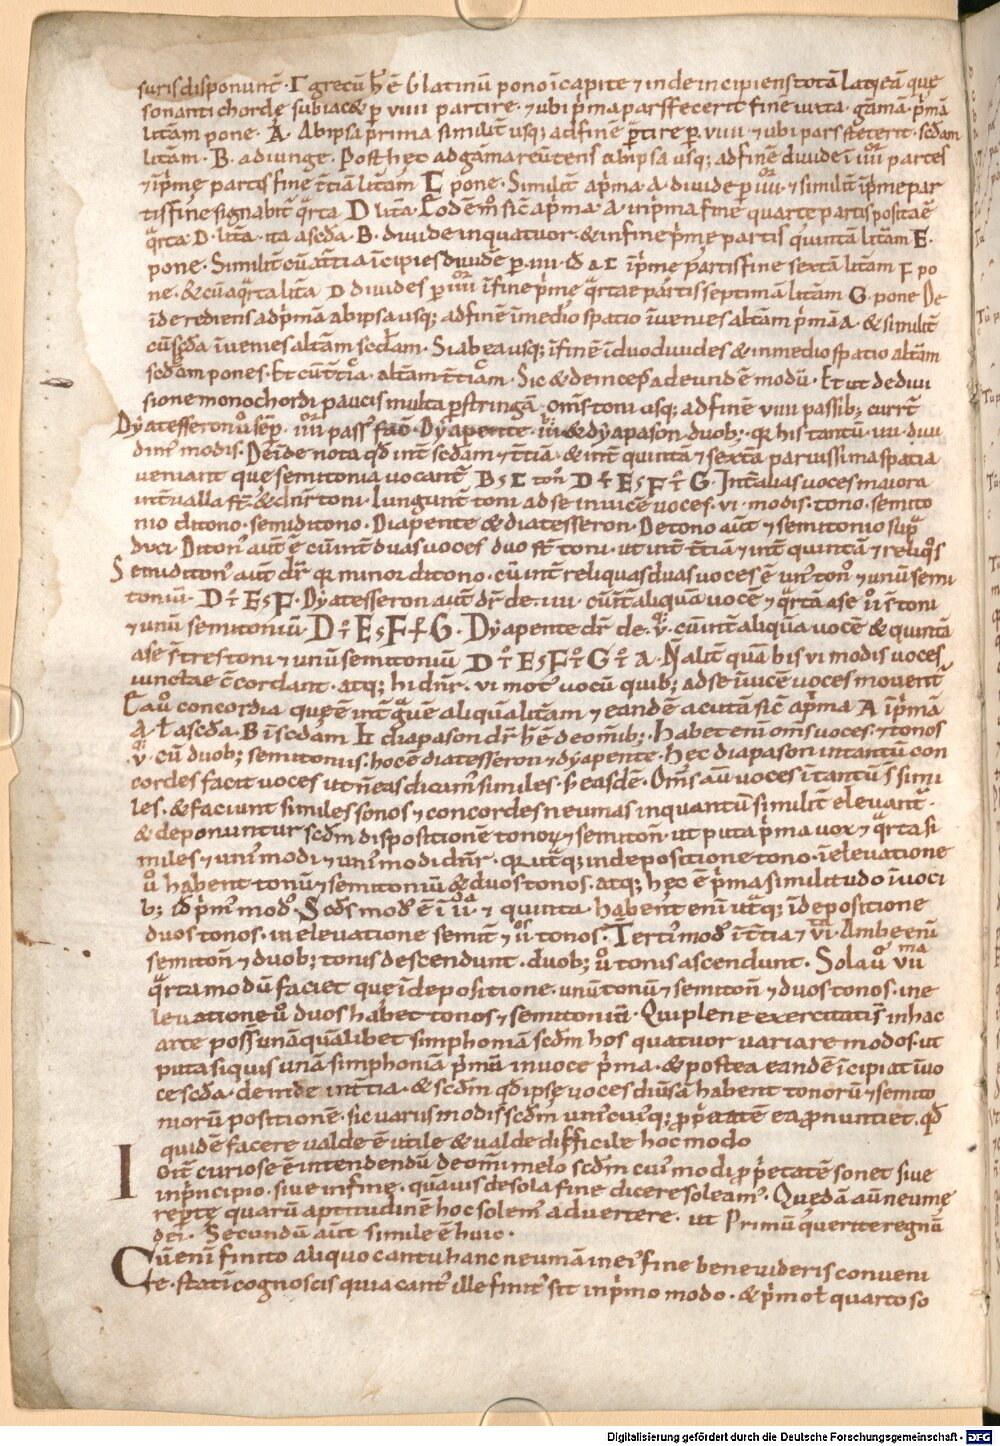 suris disponunt̄ · Γ grecū .i. ē G latinū pono ī capite ⁊ inde incipiens totā lat̄ q̄tā que
sonanti chordę subiacet p̄ VIIII partire · ⁊ ubi p̄ma pars fecerit finē iuxta · gāmā · p̄mā
litām pone · A · Ab ipsa prima similit̄ usq; ad finē p̄tire p̄ · VIIII · ⁊ ubi pars steterit · scdam
litām · B · adiunge · Post hęc ad gāma reūtens ab ipsa usq; ad finē diuide ī IIIIor partes
⁊ īp̄mę partis fine t̄tiā litām C pone · Similit̄ a p̄ma · A · diuide p̄ IIIIor · ⁊ similit̄ īp̄me par
tis fine signabit̄ q̄rta D lita · Eodē m̊ sic̄ a p̄ma · A · in p̄ma fine quarte partis posita ē
q̄rta · D · lita · ita a scda · B · diuide in quatuor · & in fine p̄mę partis quintā litām E ·
pone · Similit̄ cū a t̄tia īcipies diuide p̄ · IIIIor · id ē a C īp̄me partis fine sextā litām F po
ne · & cū a q̄rta lita D diuides p̄ IIIIor ī fine p̄mę q̄rtae partis septimā litām G · pone De
īde rediens ad p̄mā ab ipsa usq; ad finē ī medio spatio īuenies altām p̄mā A · & similit̄
cū scda īuenies altām scdam · Si ab ea usq; ī finē ī duo diuides & in medio spatio altām
scdam pones · Et cū t̄tia · altām t̄tiām · Sic & deinceps a de eundē modū · Et ut de diui
sione monochordi paucis multa p̄stringā · om̄s toni usq; ad finē VIIII passib; currt̄
Dyatesseron ů sep̄ · IIIIor pass' fac̄ · Dyapente · III & dyapason duob; · qr his tantū · IIII · diui
ditur modis · Deīde nota qd int̄ scdam ⁊ t̄tia · & int̄ quinta ⁊ sextā paruissima spatia
ueniant que semitonia uocant̄ B s C ton̄ D t̄ E s F t̄ G · Int̄ alias uoces maiora
interualla st̄ · & dnr̄ toni · Iungunt̄ toni ad se inuicē uoces · VI · modis · tono · semito
nio ditono · semiditono · Diapente & diatesseron · De tono aut̄ ⁊ semitonio sup̄a
dixi · Diton' aut̄ ē cū int̄ duas uoces duo st̄ toni · ut int̄ t̄tiā ⁊ int̄ quintā ⁊ reliq̊s
Semiditon' aut̄ dr̄ qr minor ditono · cū int̄ reliquas duas uoces ē un' ton' ⁊ unū semi
toniū · D t̄ E s F · Dyatesseron aut̄ dr̄ de · IIII · cū int̄ aliquā uocē ⁊ q̄rtā a se II s̄t toni
⁊ unū semitoniū · D t̄ E s F t̄ G · Dyapente dr̄ de · V · cū int̄ aliquā uocē & quintā
a se s̄ tres toni ⁊ unū semitoniū D t̄ E s F t̄ G t̄ A · N alit̄ quā bis VI modis uoces
iunctae c̄cordant · atq; hi dnr̄ · VI mot' uocū quib; ad se īuicē uoces mouent̄
Ea ů concordia que ē int̄ grauē aliquā litām ⁊ eandē acutā sic̄ a p̄ma A ī p̄mā
A · ł a scda · B ī scdam b diapason dr̄ hˢ ē de om̄ib; · Habet enī om̄s uoces · ⁊ tonos
· V · cū duob; semitoniis · hoc ē diatesseron ⁊ dyapente · Hęc diapason in tantū con
cordes facit uoces ut n̄ eas dicam' similes · s̄ easdē · Om̄s aū uoces ī tantū s̄ simi
les · & faciunt similes sonos ⁊ concordes neumas inquantū similit̄ eleuant̄ ·
& deponuntur scd̄m dispositionē tonorꝝ ⁊ semiton̄ · ut puta p̄ma uox ⁊ q̄rta si
miles ⁊ uni' modi ⁊ uni' modi dnr̄ · qr ut̄q; in depositione tono · ī eleuatione
ů habent tonū ⁊ semitoniū & duos tonos · atq; hęc ē p̄ma similitudo ī uoci
b; id p̄m' mod' · Scds mod' ē ī IIa · ⁊ quinta · habent enī ut̄q; ī depositione
duos tonos · in eleuatione semit̄ ⁊ IIos tonos · Terti' mod' ī t̄tia ⁊ VIta · Ambe enī
semiton̄ ⁊ duob; tonis descendunt · duob; ů tonis ascendunt · Sola ů VIIma
q̄rta modū faciet que ī depositione · unū tonū ⁊ semiton̄ ⁊ duos tonos · in e
leuatione ů duos habet tonos ⁊ semitoniū · Qui plene exercitat' s̄ in hac
arte poss̄ unāquālibet simphoniā scd̄m hos quatuor uariare modos · ut
puta si quis unā simphoniā p̄mū in uoce p̄ma · & postea eandē īcipiat ī uo
ce scda · deinde in t̄tia · & scd̄m qd ipse uoces diūsā habent tonorū ⁊ semito
niorū positionē · sic uariis modis scd̄m uni'cui'q; p̄p̄etatē ea p̄nuntiet · qd
quidē facere ualde ē utile & ualde difficile hoc modo
Ioit̄ curiose ē intendendū de om̄i melo scd̄m cui' modi p̄p̄etatē sonet siue
in p̄ncipio · siue in fine · quāuis de sola fine dicere soleam' · Quedā aū neume
reptę quarū aptitudinē hoc solem' aduertere · ut Primū querite regnū
dei · Secundū aut̄ simile ē huic ·
Cū enī finito aliquo cantu hanc neumā in ei' fine bene uideris conueni
re · stati cognoscis quia cant' ille finit' sit in p̄mo modo · & p̄mo ł quarto so
Digitalisierung gefördert durch die Deutsche Forschungsgemeinschaft - DFG